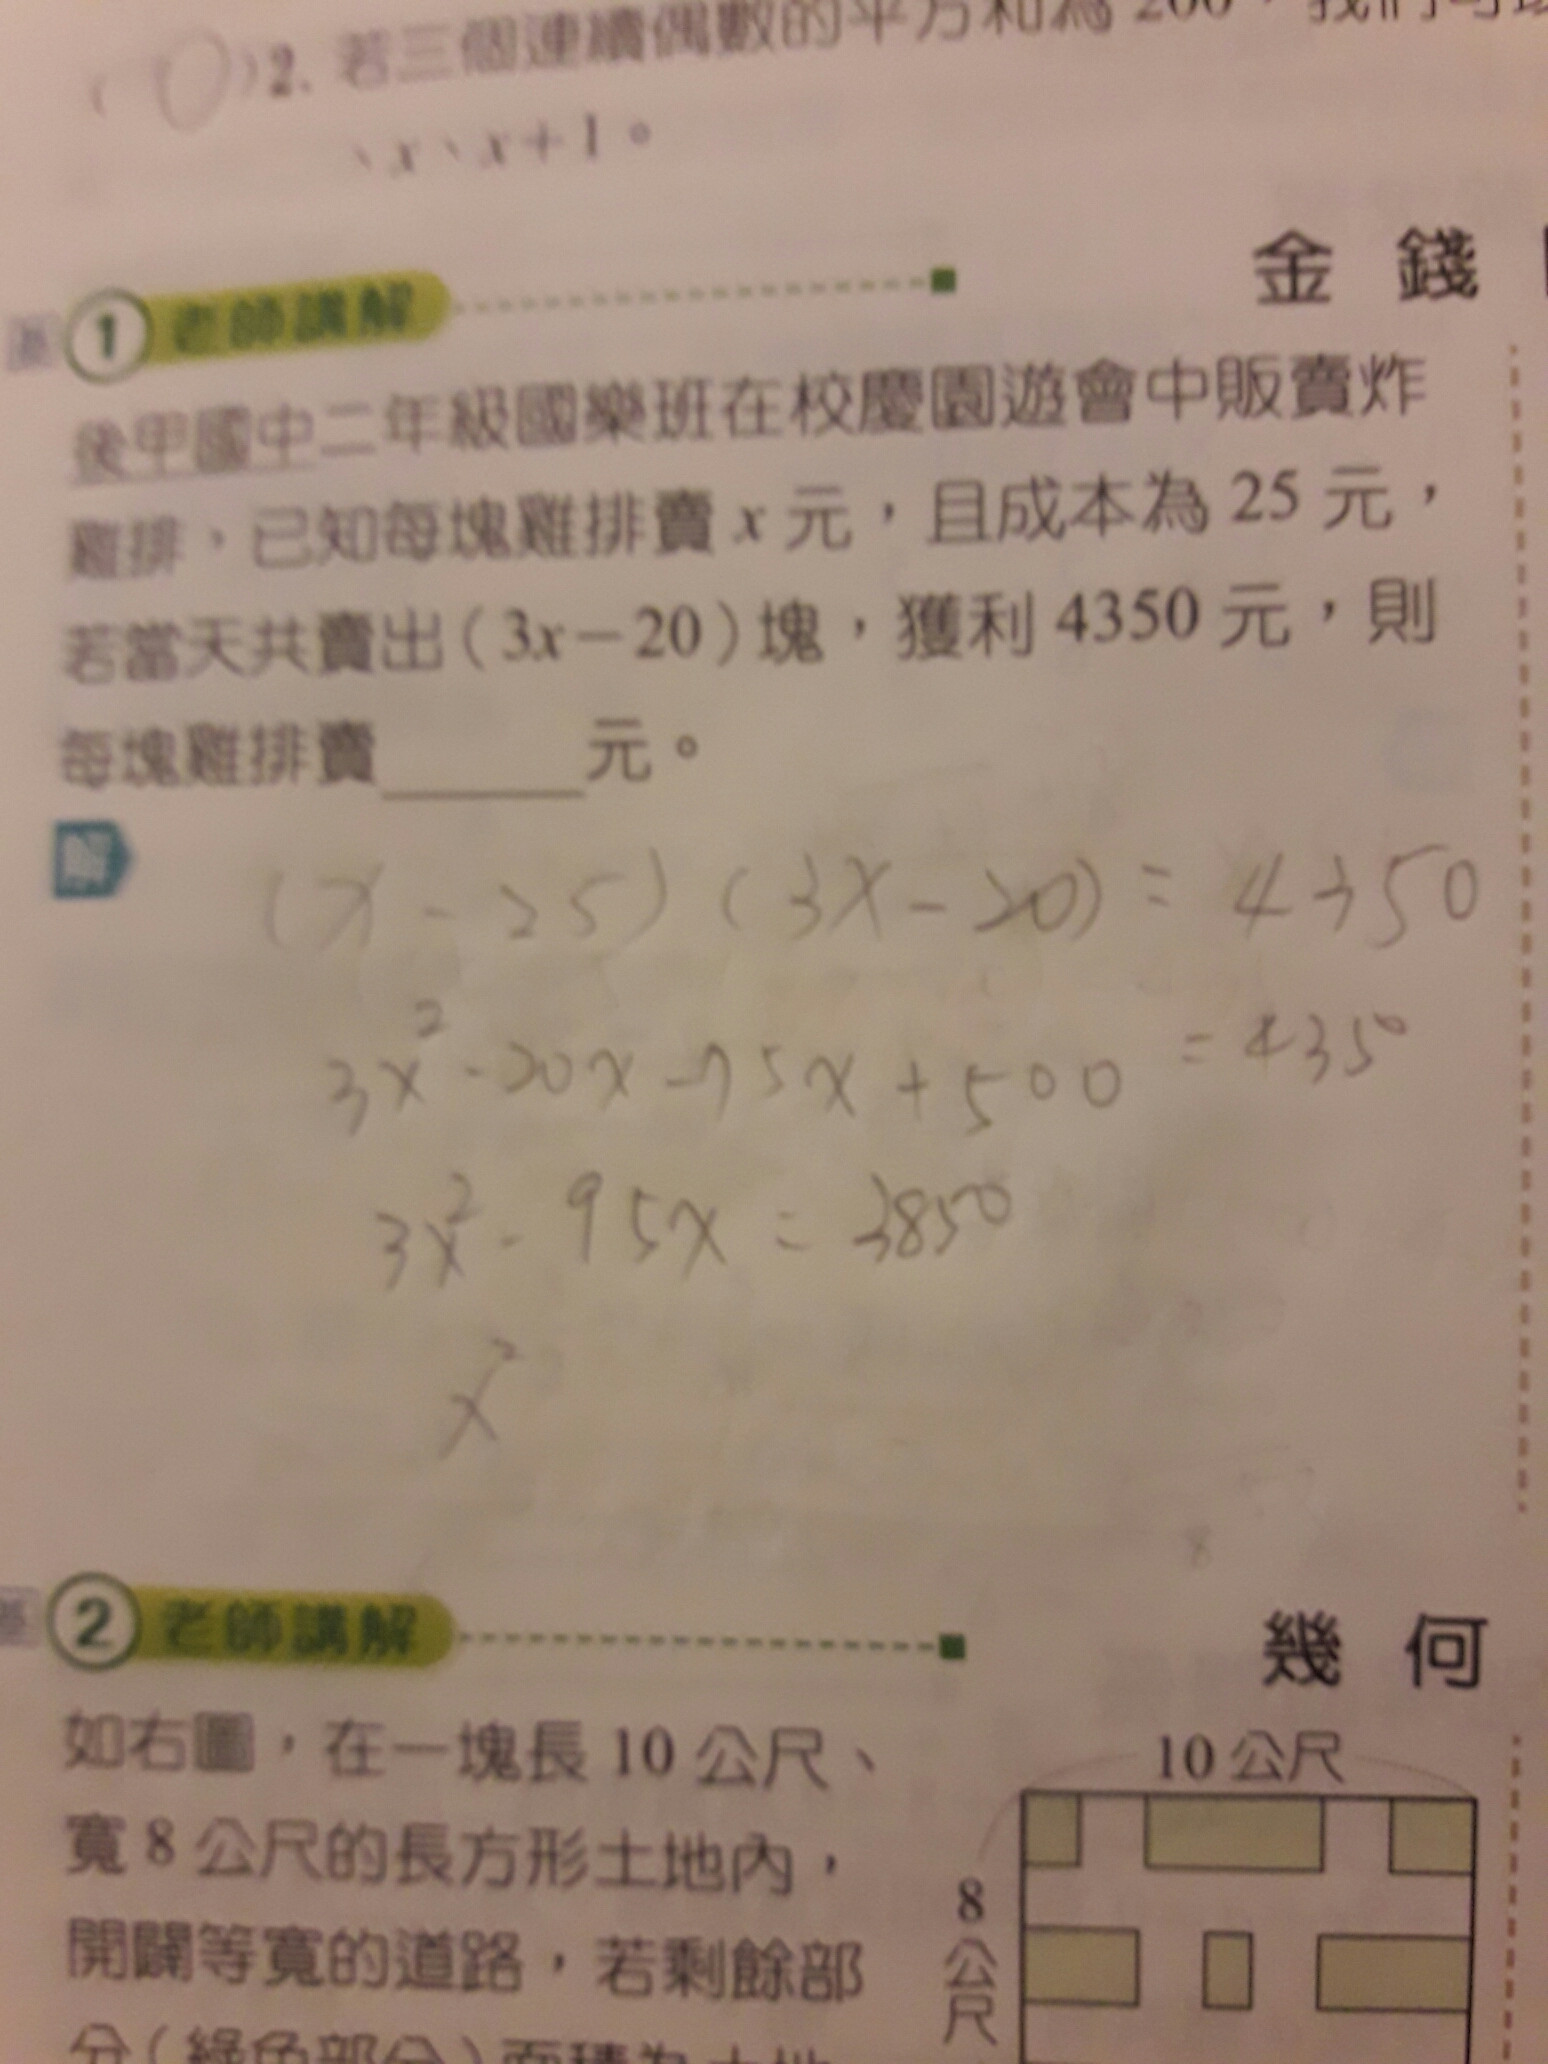 ( O ) 2. 若三個連續偶數的平方和為 200，我們可以
、x、x+1。
金 錢
基 1 老師講解
後甲國中二年級國樂班在校慶園遊會中販賣炸
雞排，已知每塊雞排賣 x 元，且成本為 25 元，
若當天共賣出（3x－20）塊，獲利 4350 元，則
每塊雞排賣______元。
解
(x - 25) (3x - 20) = 4350
3x² - 20x - 75x + 500 = 4350
3x² - 95x = 3850
x²
基 2 老師講解
幾 何
如右圖，在一塊長 10 公尺、
寬 8 公尺的長方形土地內，
開闢等寬的道路，若剩餘部
分（綠色部分）面積為土地
10 公尺
8公尺